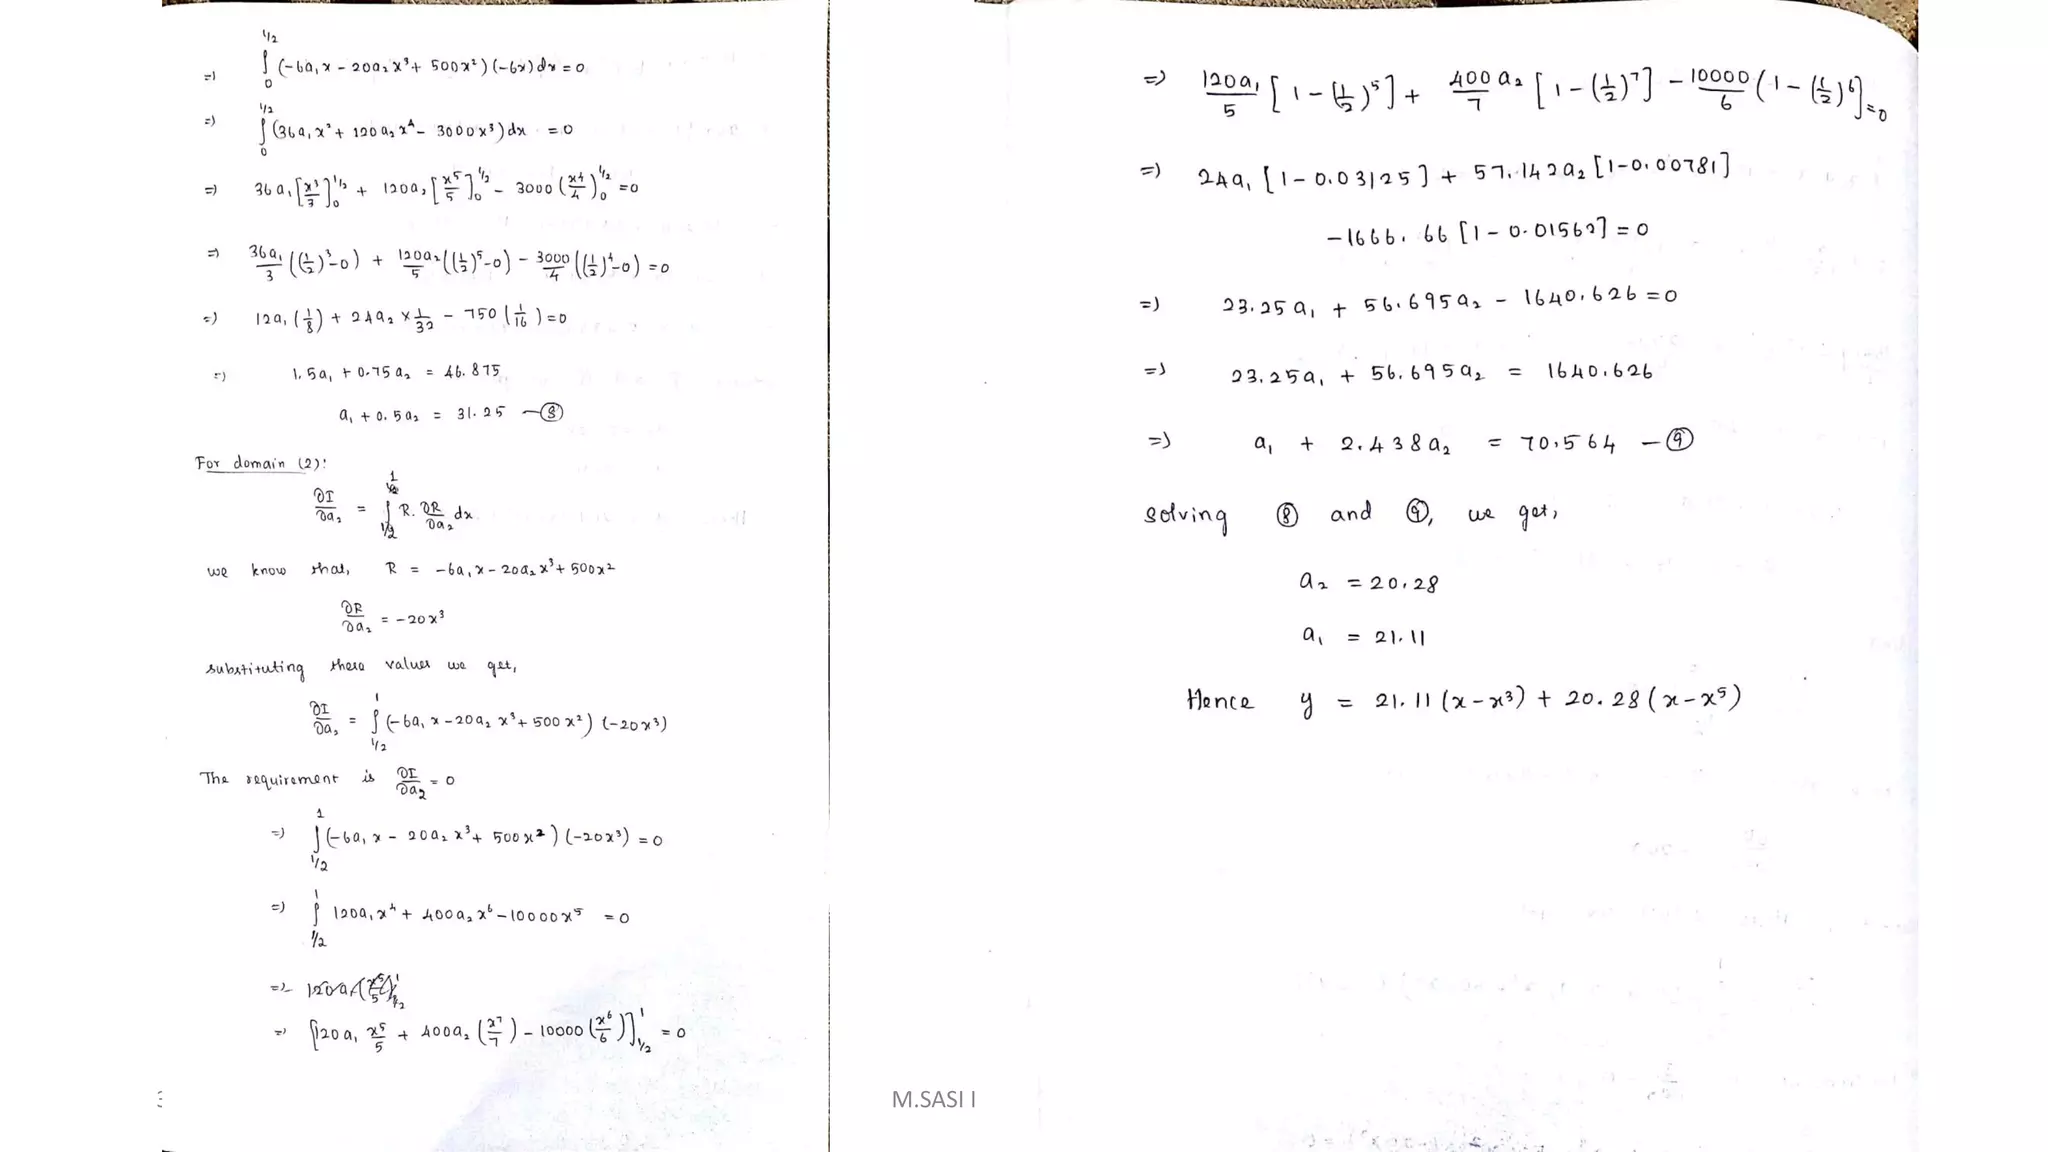 =) ∫₀^{1/2} (-6a₁x - 20a₂x³ + 500x²)(-6x) dx = 0
=) ∫₀^{1/2} (36a₁x² + 120a₂x⁴ - 3000x³) dx = 0
=) 36a₁[x³/3]₀^{1/2} + 120a₂[x⁵/5]₀^{1/2} - 3000(x⁴/4)₀^{1/2} = 0
=) 36a₁/3 ((1/2)³-0) + 120a₂/5 ((1/2)⁵-0) - 3000/4 ((1/2)⁴-0) = 0
=) 12a₁(1/8) + 24a₂ × 1/32 - 750(1/16) = 0
=) 1.5a₁ + 0.75a₂ = 46.875
a₁ + 0.5a₂ = 31.25 —⑧
For domain (2):
∂I/∂a₂ = ∫_{1/2}^{1} R. ∂R/∂a₂ dx
we know that, R = -6a₁x - 20a₂x³ + 500x²
∂R/∂a₂ = -20x³
substituting these values we get,
∂I/∂a₂ = ∫_{1/2}^{1} (-6a₁x - 20a₂x³ + 500x²) (-20x³)
The requirement is ∂I/∂a₂ = 0
=) ∫_{1/2}^{1} (-6a₁x - 20a₂x³ + 500x²) (-20x³) = 0
=) ∫_{1/2}^{1} 120a₁x⁴ + 400a₂x⁶ - 10000x⁵ = 0
=) [120a₁ x⁵/5 + 400a₂ (x⁷/7) - 10000 (x⁶/6)]_{1/2}^{1} = 0
=) 120a₁/5 [1 - (1/2)⁵] + 400a₂/7 [1 - (1/2)⁷] - 10000/6 (1 - (1/2)⁶] = 0
=) 24a₁ [1 - 0.03125] + 57.142a₂ [1-0.00781]
-1666.66 [1 - 0.01562] = 0
=) 23.25a₁ + 56.695a₂ - 1640.626 = 0
=) 23.25a₁ + 56.695a₂ = 1640.626
=) a₁ + 2.438a₂ = 70.564 —⑨
solving ⑧ and ⑨, we get,
a₂ = 20.28
a₁ = 21.11
Hence y = 21.11(x-x³) + 20.28(x-x⁵)
M.SASI I